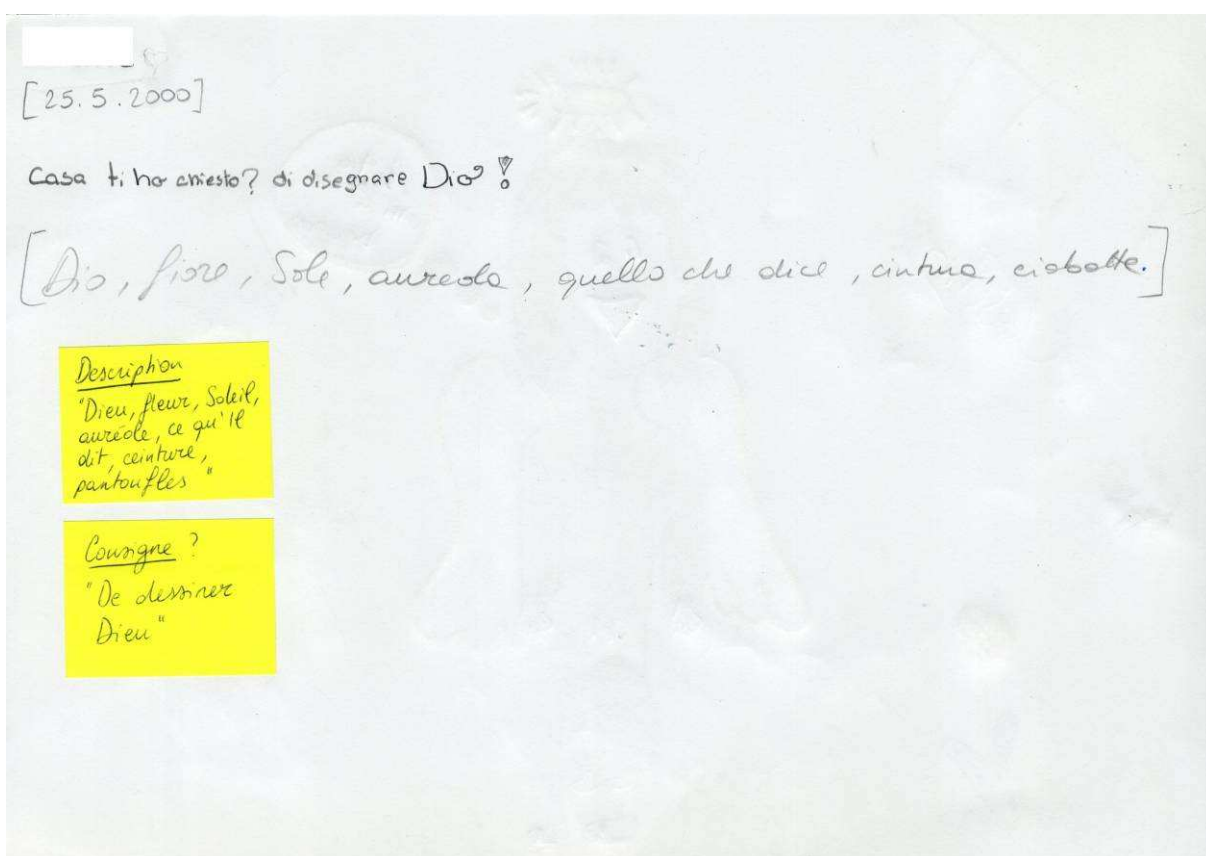 [25.5.2000]
Casa ti ho chiesto? di disegnare Dio!
[Dio, fiore, Sole, aureola, quello che dice, cintura, ciabatte.]
Description
"Dieu, fleur, Soleil,
auréole, ce qu'Il
dit, ceinture,
pantoufles"
Consigne ?
"De dessiner
Dieu"